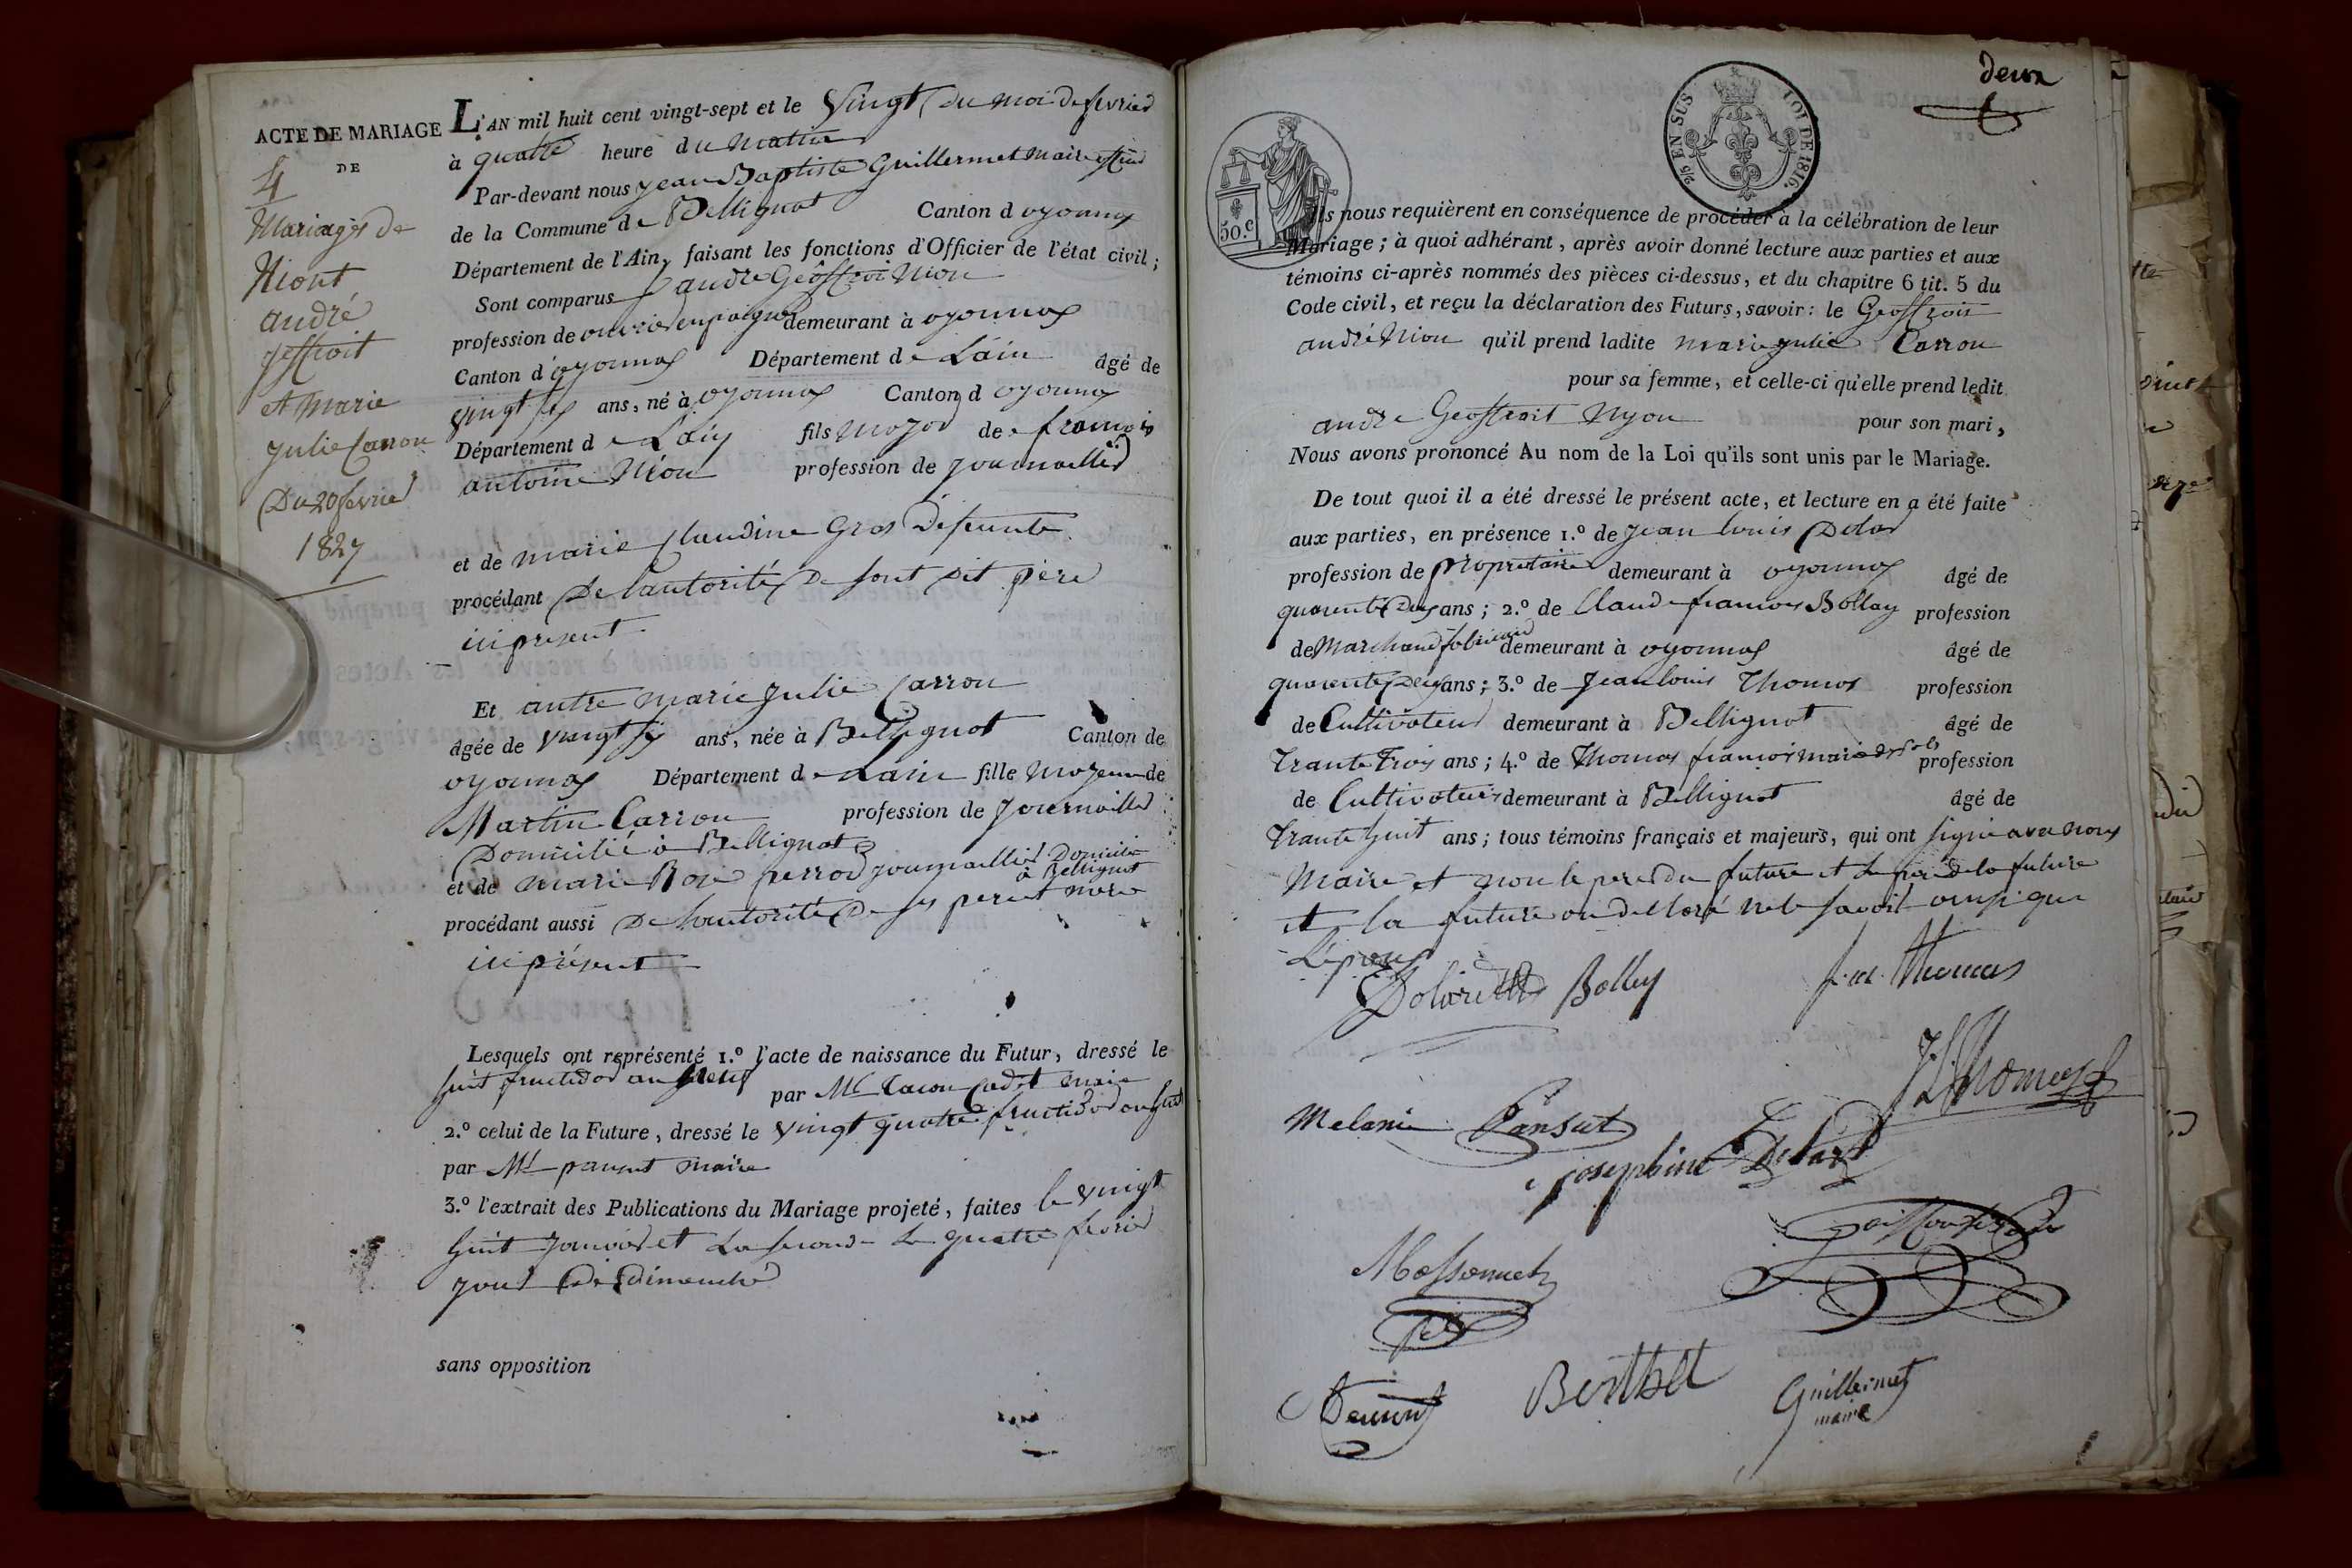 ACTE DE MARIAGE
DE
4
Mariages de
Niont
andré
jeffroit
et Marie
Julie Carron
Du 20 fevrier
1827
L'AN mil huit cent vingt-sept et le Vingt du moi de fevrier
à quatre heure du matin
Par-devant nous jean Baptiste Guillermet Maire
de la Commune de Bellignat Canton d oyonnax
Département de l'Ain, faisant les fonctions d'Officier de l'état civil ;
Sont comparus andre Geoffroi Nion
profession de ouvrier en peignes demeurant à oyonnax
Canton d oyonnax Département de Lain âgé de
vingt six ans, né à oyonnax Canton d oyonnax
Département de Lain fils major de francois
antoine Nion profession de journallier
et de marie Claudine Gros defunte
procédant De lautorité De sont dit père
ici present
Et autre marie Julie Carron
âgée de vingt six ans, née à Bellignat Canton de
oyonnax Département de Lain fille mojeure de
Martin Carron profession de journallier
Domicilié à Bellignat
et de marie Rose perrod journallier Domicilié
à Bellignat
procédant aussi De lautorité De ses pere et mere
ici présent
Lesquels ont représenté 1.º l'acte de naissance du Futur, dressé le
huit fructidor an
par Mr Cadet maire
2.º celui de la Future, dressé le vingt quatre fructidor an huit
par Mr pansut maire
3.º l'extrait des Publications du Mariage projeté, faites le vingt
huit janvier et La seconde Le quatre fevrier
jour De dimanche
sans opposition
deux
2/5 EN SUS
LOI DE 1816.
50.c
Ils nous requièrent en conséquence de procéder à la célébration de leur
Mariage ; à quoi adhérant, après avoir donné lecture aux parties et aux
témoins ci-après nommés des pièces ci-dessus, et du chapitre 6 tit. 5 du
Code civil, et reçu la déclaration des Futurs, savoir : le Geoffroit
andré Nion qu'il prend ladite marie julie Carron
pour sa femme, et celle-ci qu'elle prend ledit
andre Geoffroit Nyon pour son mari,
Nous avons prononcé Au nom de la Loi qu'ils sont unis par le Mariage.
De tout quoi il a été dressé le présent acte, et lecture en a été faite
aux parties, en présence 1.º de jean louis Dolar
profession de propriétaire demeurant à oyonnax âgé de
quarente Deux ans ; 2.º de Claude francois Bollay profession
de Marchand fabricand demeurant à oyonnax âgé de
quarente Deux ans ; 3.º de Jean louis Thomas profession
de Cultivateur demeurant à Bellignat âgé de
Trante Trois ans ; 4.º de Thomas francois marie profession
de Cultivateur demeurant à Bellignat âgé de
Trante huit ans ; tous témoins français et majeurs, qui ont signé avec nous
Maire et non le pere du future et de la future
et la future on déclaré ne le savoir ainsi que
Lépoux
Bolley
f. m. Thomas
J L Thomas
Melanie Pansut
josephine Dolard
Berthet
Guillermet
maire